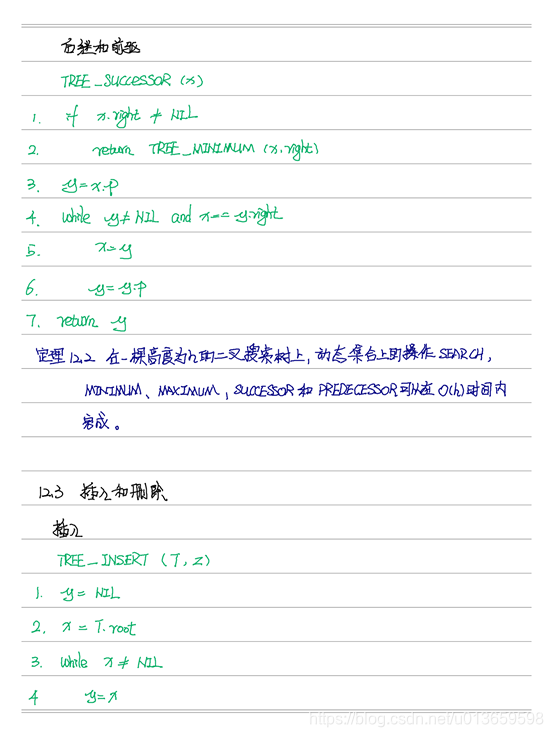 后继和前驱
TREE_SUCCESSOR (x)
1. if x.right ≠ NIL
2. return TREE_MINIMUM (x.right)
3. y=x.p
4. while y≠NIL and x==y.right
5. x=y
6. y=y.p
7. return y
定理12.2 在一棵高度为h的二叉搜索树上,动态集合上的操作SEARCH,
MINIMUM、MAXIMUM,SUCCESSOR和PREDECESSOR可以在O(h)时间内
完成。
12.3 插入和删除
插入
TREE_INSERT (T, z)
1. y=NIL
2. x=T.root
3. while x≠NIL
4 y=x
https://blog.csdn.net/u013659598